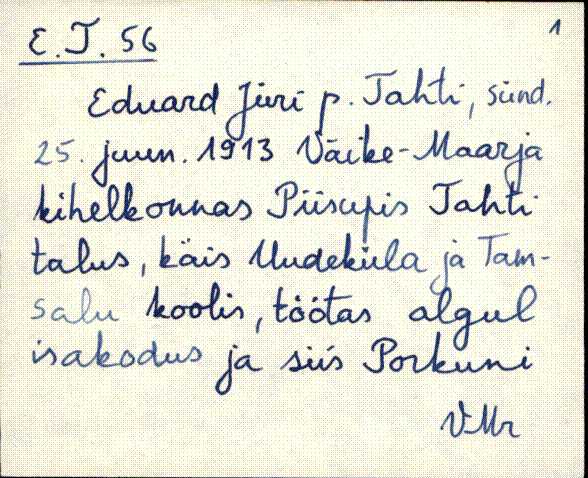 E.T. 56
1
Eduard Jüri p. Tahti, sünd.
25. juun. 1913 Väike-Maarja
kihelkonnas Piisupis Tahti
talus, käis Uudeküla ja Tam-
salu koolis, töötas algul
isakodus ja siis Porkuni
VMr